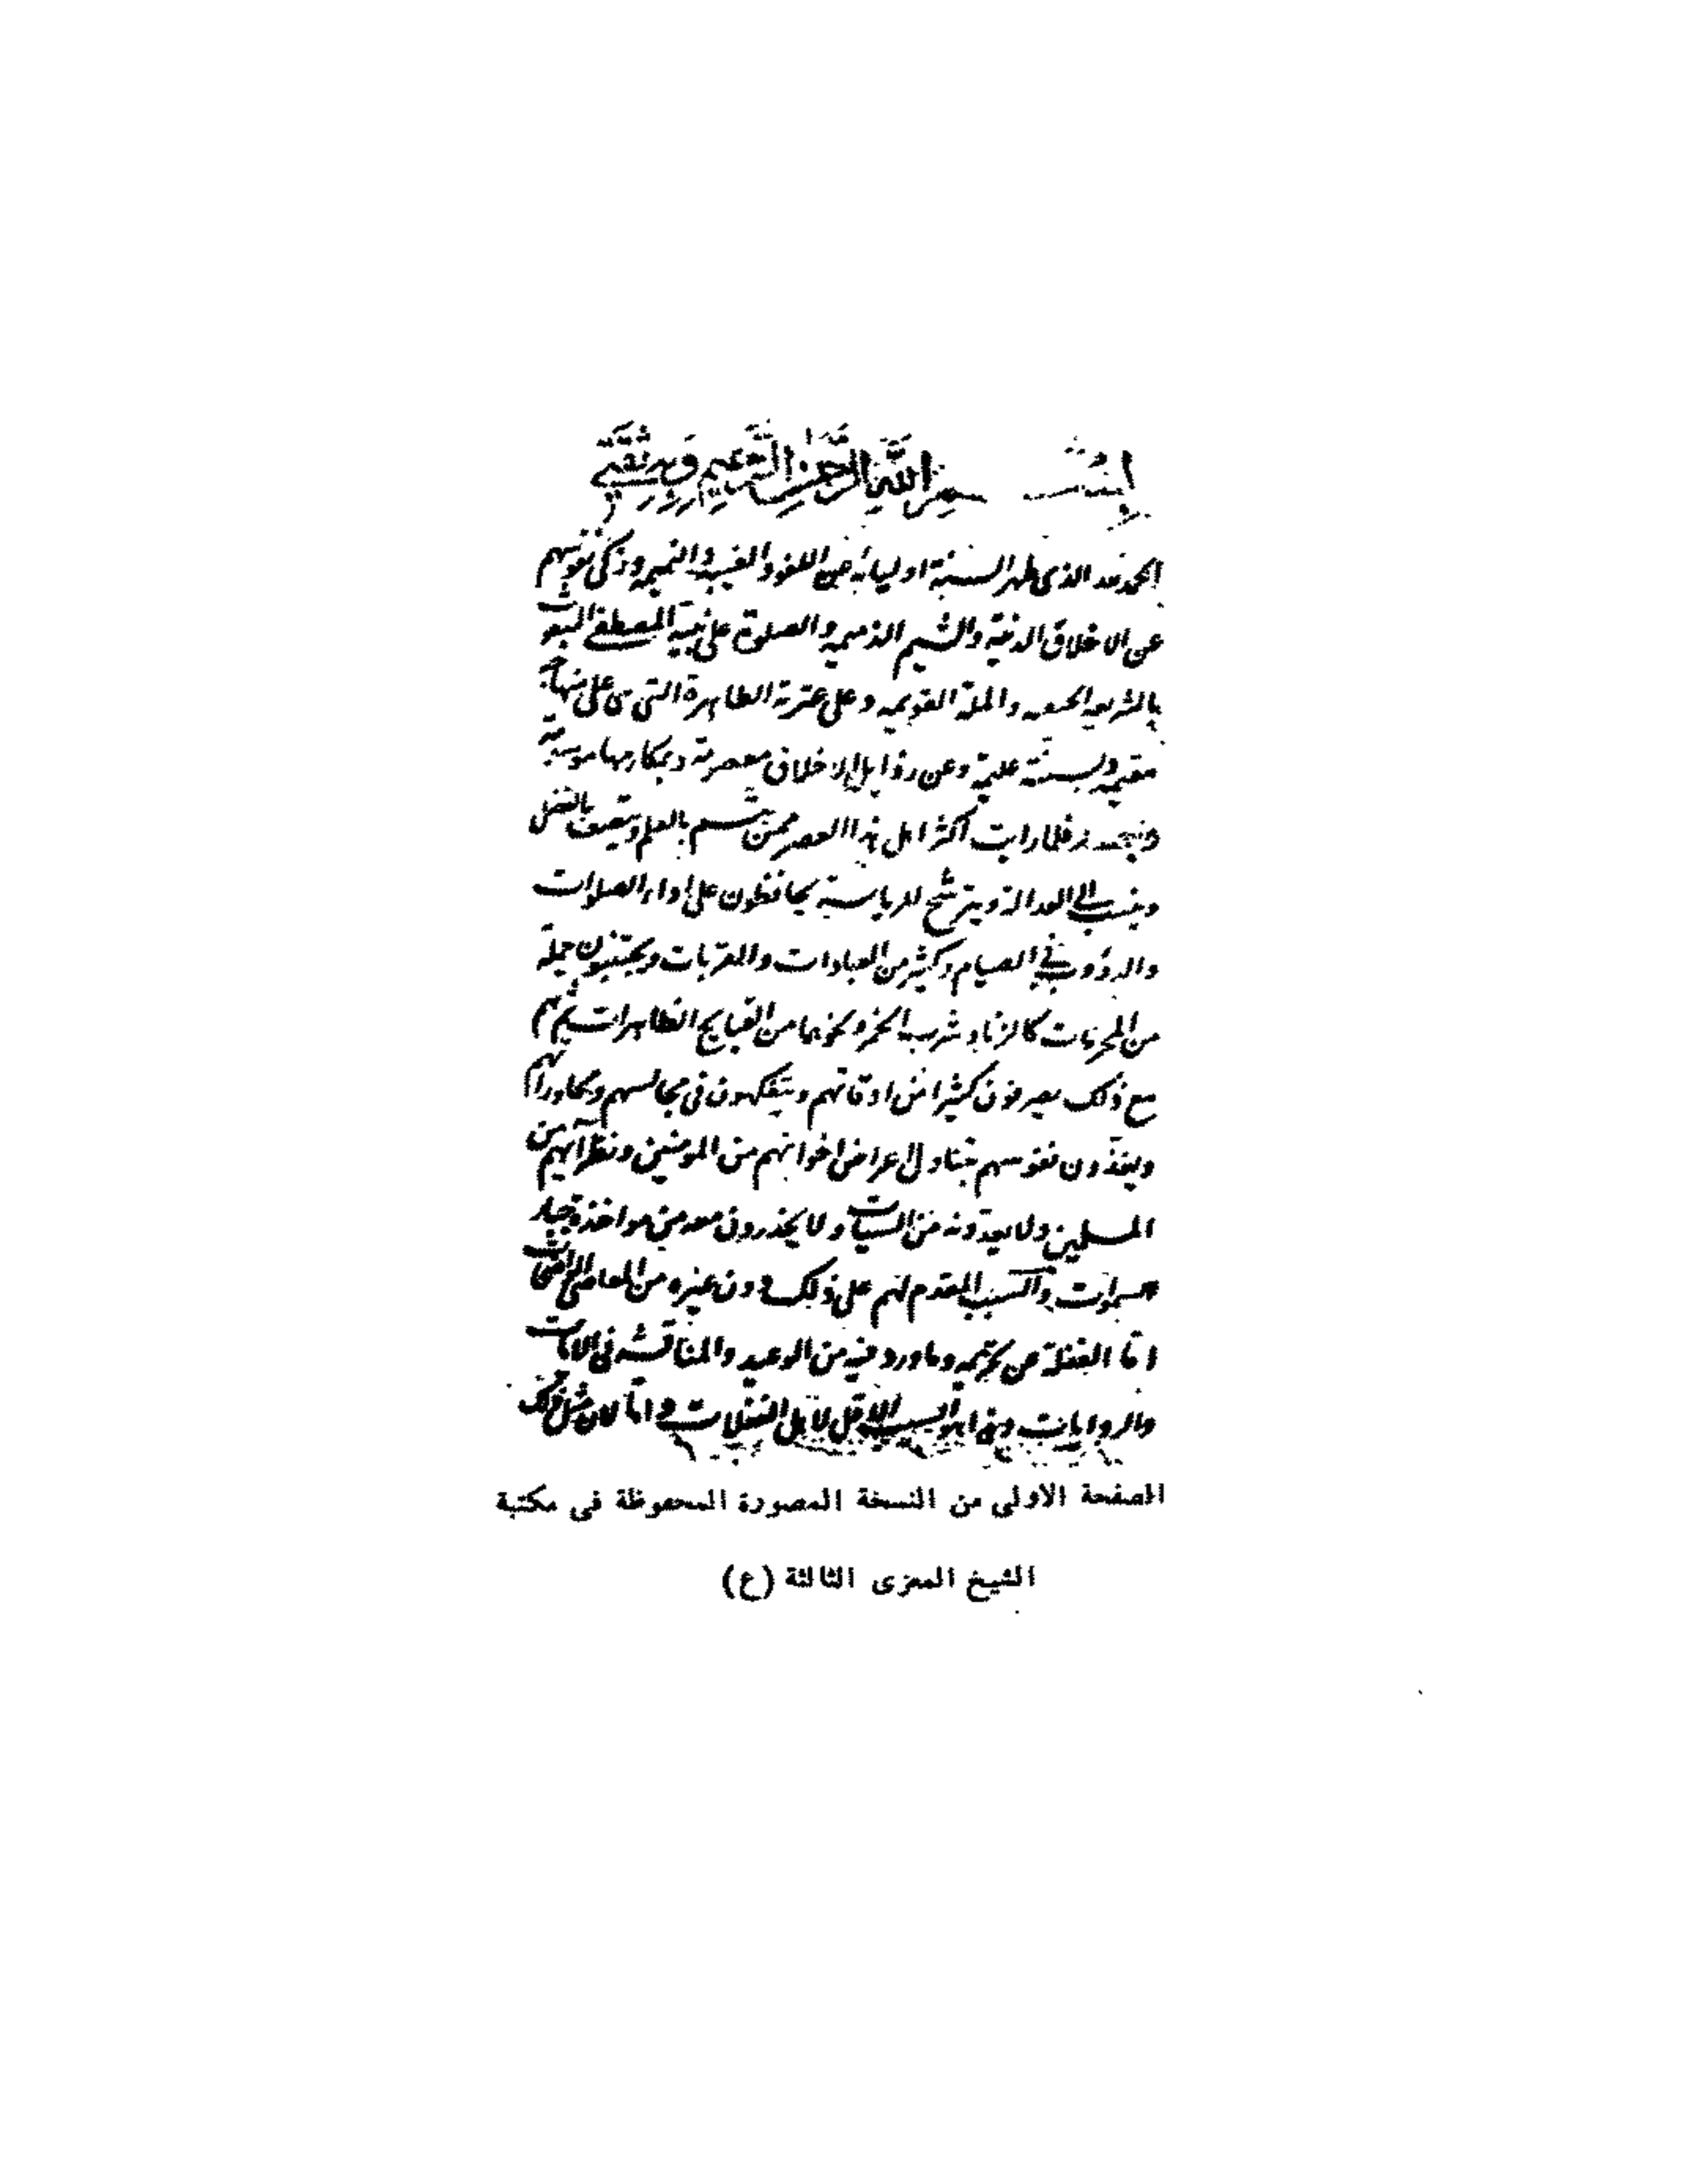 بسم الله الرحمن الرحيم وبه ثقتي
الحمد لله الذي طهر السنة اوليائه عن اللغو والغيبة والنميمه وزكى نفوسهم
عن الاخلاق الدنية والشيم الذميمه والصلوة على نبيه المصطفى المبعوث
بالشريعه الحنيفيه والملة القويمه وعلى عترته الطاهرة التي هى على منهاجه
مقيمه وبسنته عليمة وعن رذايل الاخلاق معصومة وبمكارمها موسومة
وبعد فلما رايت اكثر اهل هذا العصر ممن يتسم بالعلم ويتصف بالفضل
وينسب الى العدالة ويترشح للرياسة يحافظون على اداء الصلوات
والدؤوب في الصيام وكثير من العبادات والقربات ويجتنبون جملة
من المحرمات كالزنا وشرب الخمر ونحوهما من القبايح الظاهرات ثم هم
مع ذلك يصرفون كثيرا من اوقاتهم ويتفكهون في مجالسهم ومحاوراتهم
ويغذون نفوسهم بتناول اعراض اخوانهم من المومنين ونظرآئهم من
المسلمين ولا يعدونه من السيات ولا يحذرون معه من مواخذة جبار
السموات والسبب المقدم لهم على ذلك دون غيره من المعاصي الواضحات
اما الغفلة عن تحريمه وما ورد فيه من الوعيد والمناقشه في الايات
والروايات وهذا هو السبب الاقل لاهل الغفلات واما لان مثل ذلك
الصفحة الاولى من النسخة المصورة المحفوظة فى مكتبة
الشيخ المعزى الثالثة (ع)